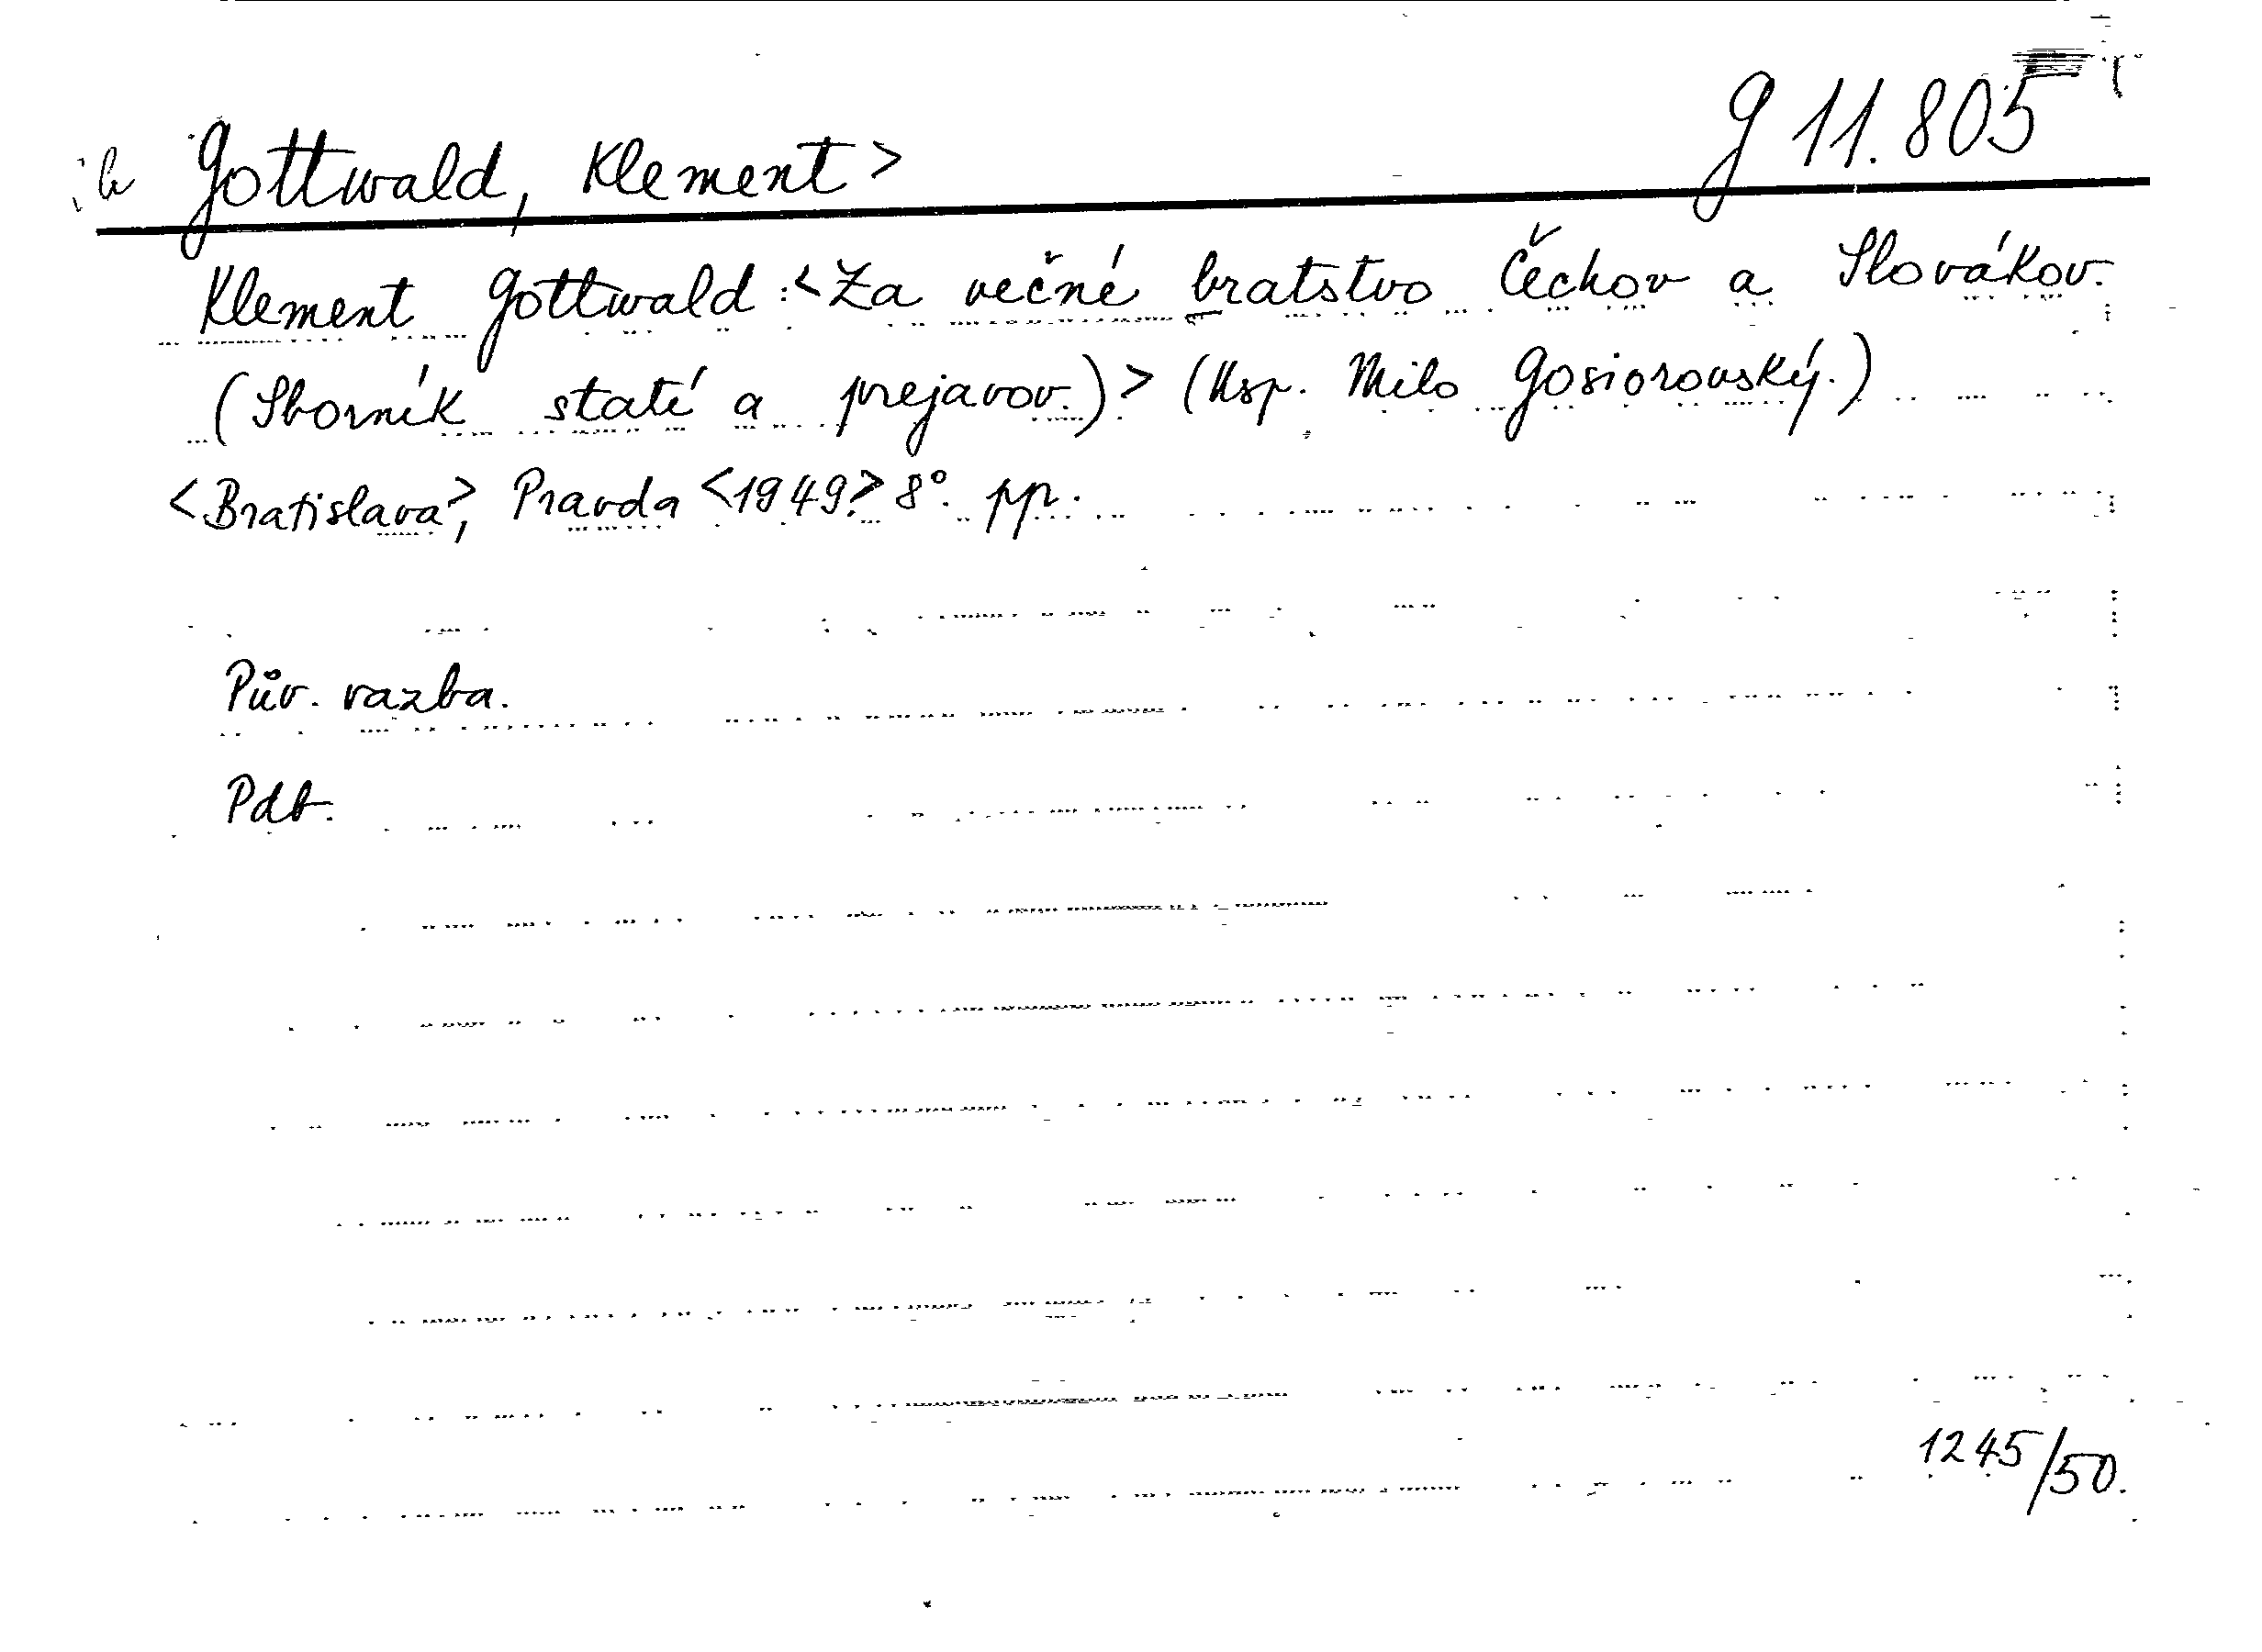 Gottwald, Klement> g 11.805
Klement Gottwald: <Za večné bratstvo Čechov a Slovákov.
(Sborník statí a prejavov.)> (Usp. Milo Gosiorovský.)
<Bratislava>, Pravda <1949> 8°. pp.
Pův. vazba.
Pdt.
1245/50.